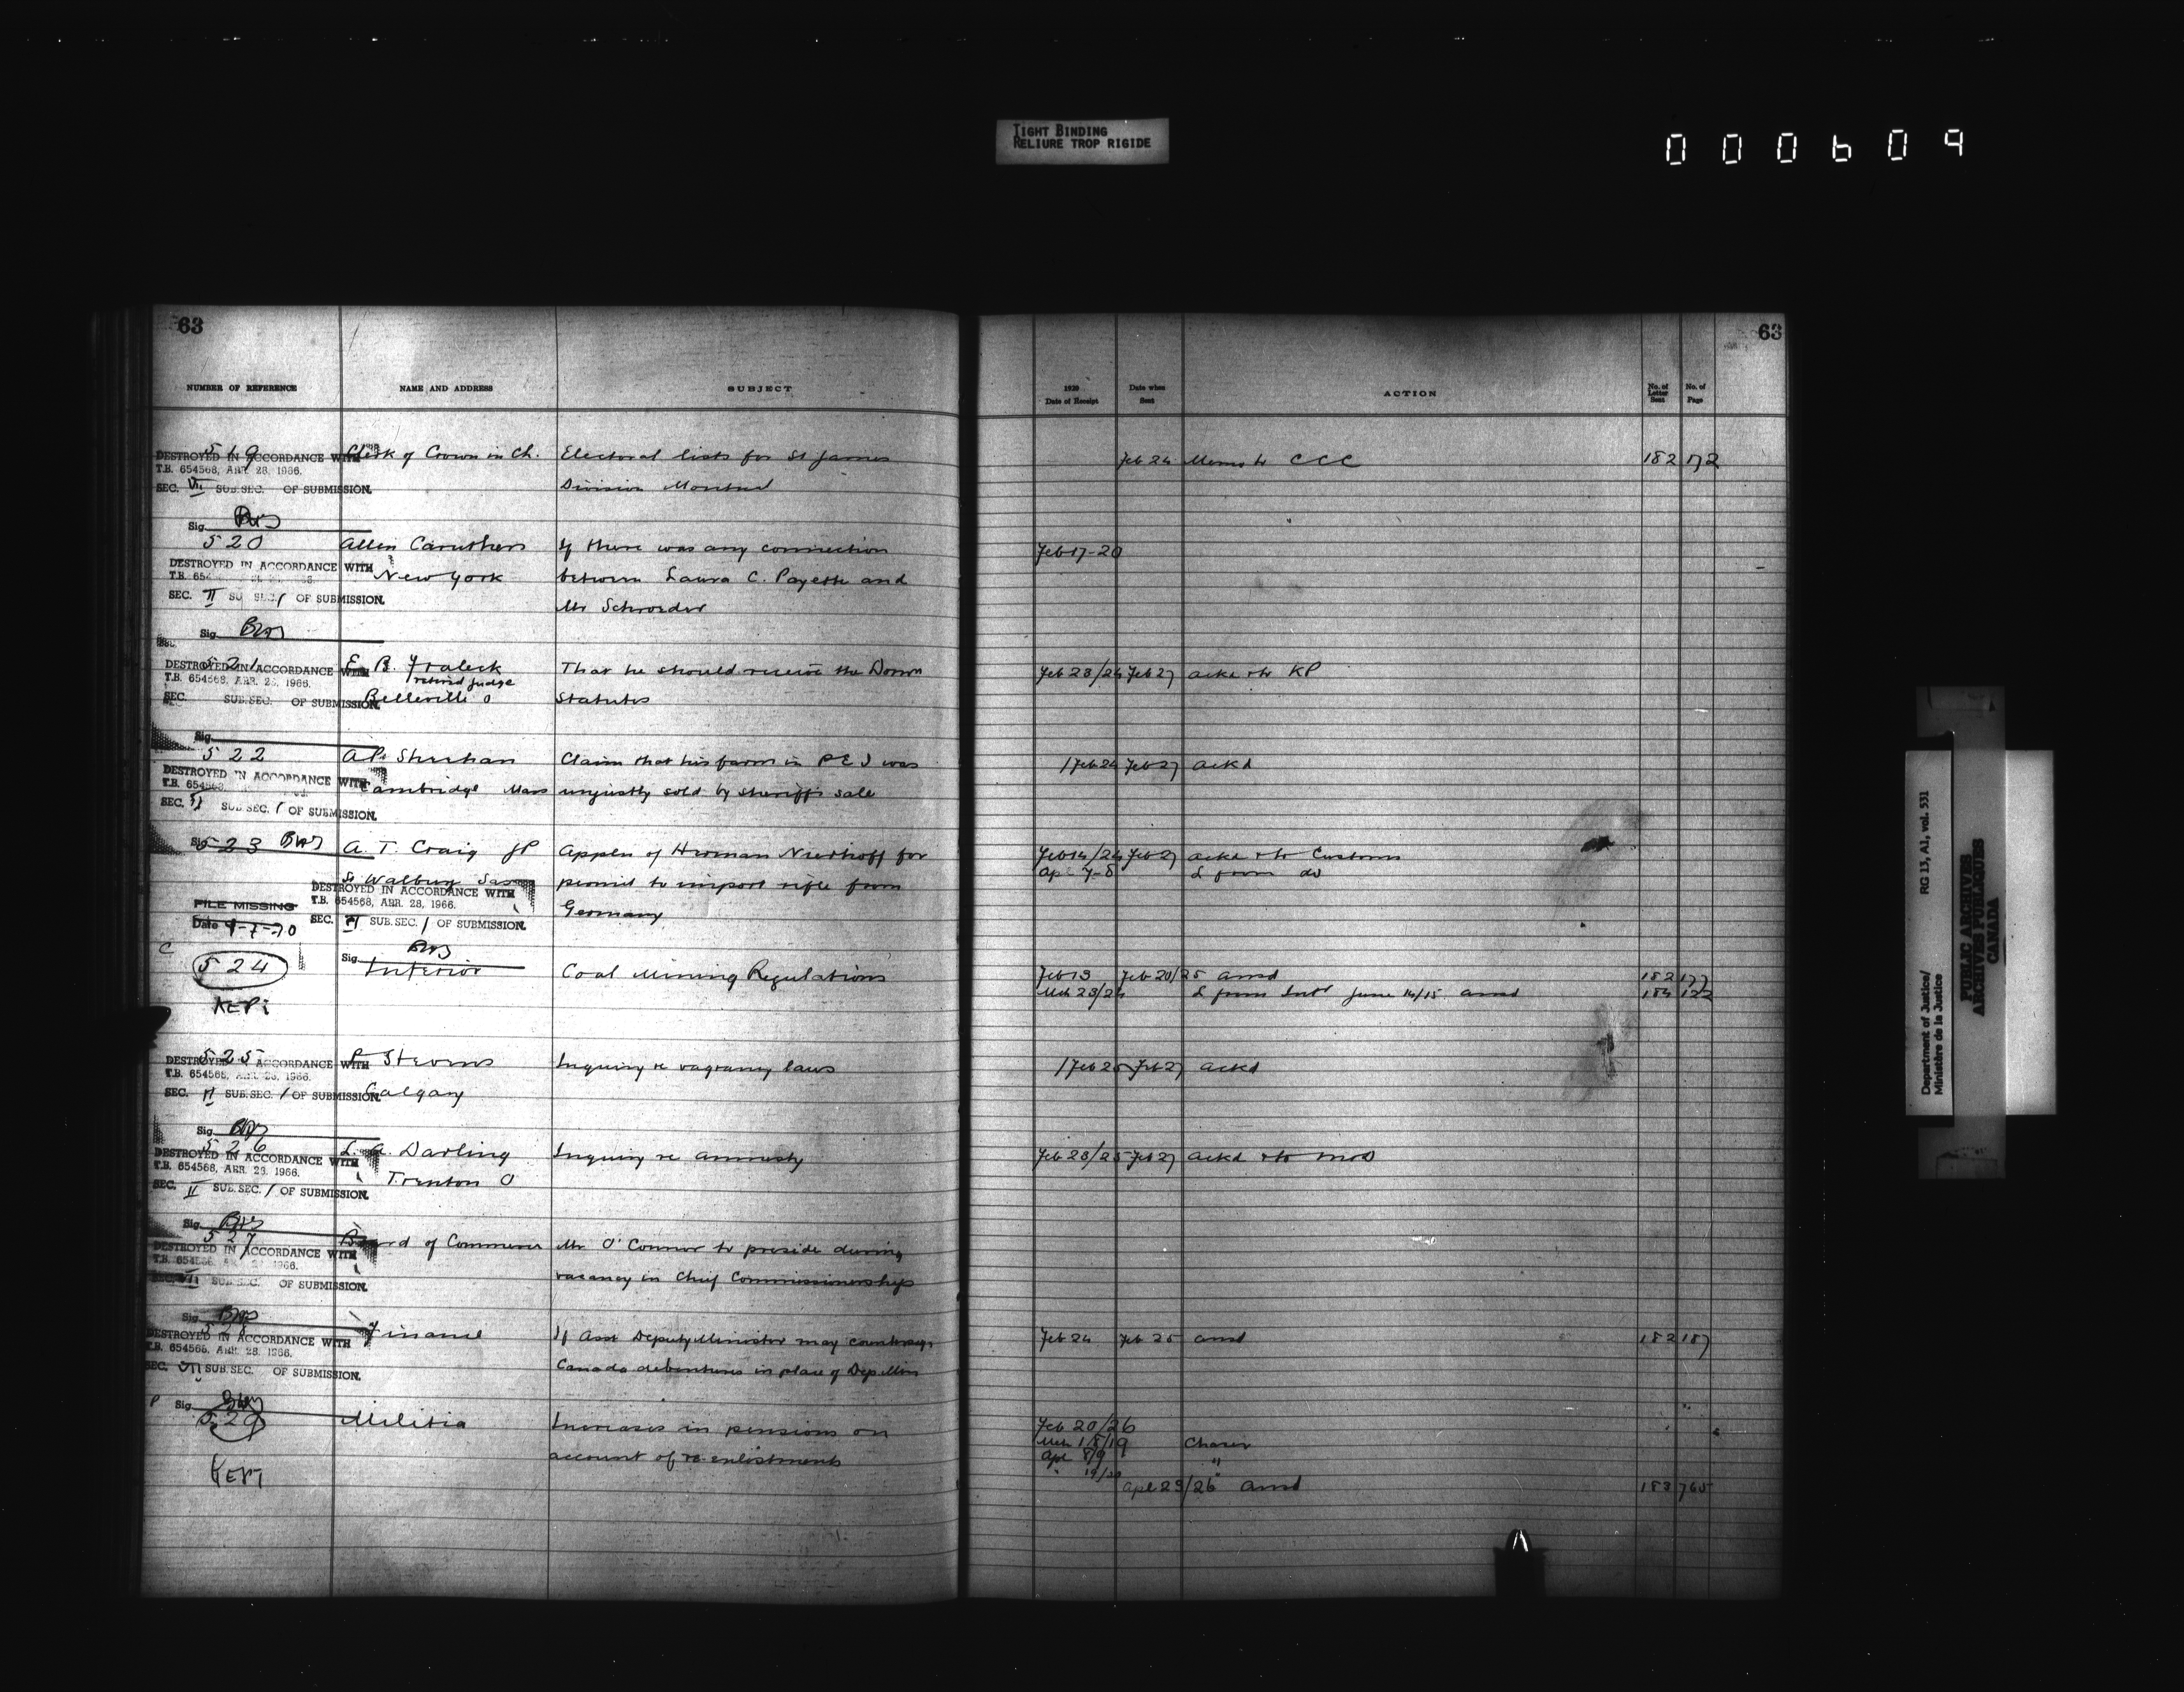 TIGHT BINDING
RELIURE TROP RIGIDE
000609
63
NUMBER OF REFERENCE NAME AND ADDRESS SUBJECT
519 Clerk of Crown in Ch. Electoral lists for St James
DESTROYED IN ACCORDANCE WITH
T.B. 654568, APR. 28, 1966.
SEC. VII SUB.SEC. OF SUBMISSION. Division Montreal
Sig.
520 Allen Caruthers If there was any connection
DESTROYED IN ACCORDANCE WITH
New York between Laura C. Payette and
SEC. II SUB SEC. / OF SUBMISSION.
Mr Schroeder
Sig.
521 E. B. Fraleck That he should receive the Dom
DESTROYED IN ACCORDANCE WITH
T.B. 654568, APR. 28, 1966. retired judge
SEC. SUB.SEC. OF SUBMISSION. Belleville O Statutes
Sig.
522 A P. Sheehan Claim that his farm in P E I was
DESTROYED IN ACCORDANCE WITH
T.B. 654568 Cambridge Mass unjustly sold by sheriff's sale
SEC. VI SUB SEC. / OF SUBMISSION.
Sig.
523 A. T. Craig JP Appln of Herman Niedhoff for
St Walburg Sas permit to import rifle from
DESTROYED IN ACCORDANCE WITH
T.B. 654568, APR. 28, 1966.
FILE MISSING Germany
Date 9-7-70 SEC. VI SUB.SEC. / OF SUBMISSION.
C
Sig.
524 Interior Coal Mining Regulations
KEPT
525 P Stevens Inquiry re vagrancy laws
DESTROYED IN ACCORDANCE WITH
T.B. 654568, APR. 28, 1966.
SEC. VI SUB.SEC. / OF SUBMISSION. Calgary
Sig.
526 L. A. Darling Inquiry re amnesty
DESTROYED IN ACCORDANCE WITH
T.B. 654568, APR. 28, 1966.
Trenton O
SEC. II SUB.SEC. / OF SUBMISSION.
Sig.
527 Board of Commerce Mr O'Connor to preside during
DESTROYED IN ACCORDANCE WITH
vacancy in Chief Commissionership
SUB.SEC. OF SUBMISSION.
Sig.
528 Finance If Asst Deputy Minister may countersign
DESTROYED IN ACCORDANCE WITH
T.B. 654568, APR. 28, 1966.
SEC. VII SUB.SEC. OF SUBMISSION. Canada debentures in place of Dep Min
P Sig.
529 Militia Increases in pensions on
account of re-enlistments
KEPT
63
1920 Date of Receipt Date when Sent ACTION No. of Letter Sent No. of Page
Feb 24 Memo to CCC 182 172
Feb 17-20
Feb 23/24 Feb 27 ackd + to KP
/Feb 24 Feb 27 ackd
Feb 14/24 Feb 27 ackd + to Customs
Apl 7-8 L from do
Feb 13 Feb 20/25 ansd 182 177
Mch 23/24 L from Intr June 14/15 ansd 184 122
/Feb 25 Feb 27 ackd
Feb 23/25 Feb 27 ackd + to MOD
Feb 24 Feb 25 ansd 182 187
Feb 20/26
Mch 18/19 Chaser
Apl 8/9 "
" 19/20 "
Apl 23/26 ansd 183 765
Department of Justice/
Ministère de la Justice
RG 13, A1, vol. 531
PUBLIC ARCHIVES
ARCHIVES PUBLIQUES
CANADA